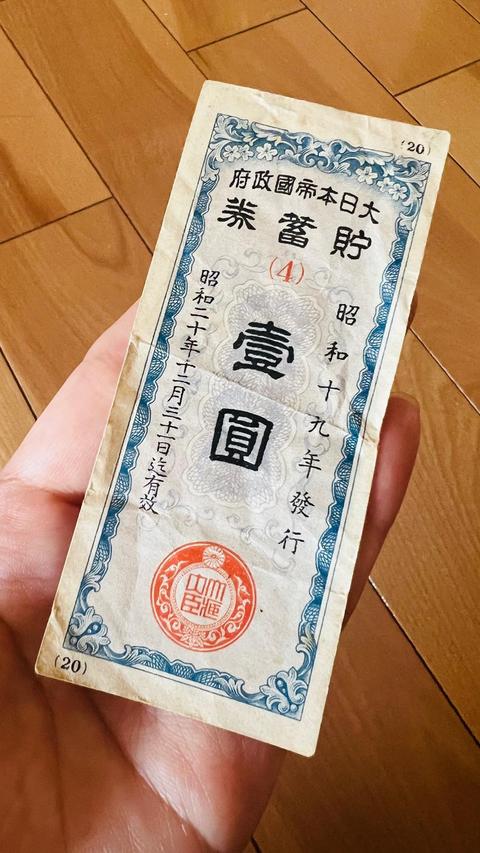 (20)
大日本帝國政府
貯蓄券
(4)
昭和十九年發行
壹圓
昭和二十年十二月三十一日迄有效
(20)